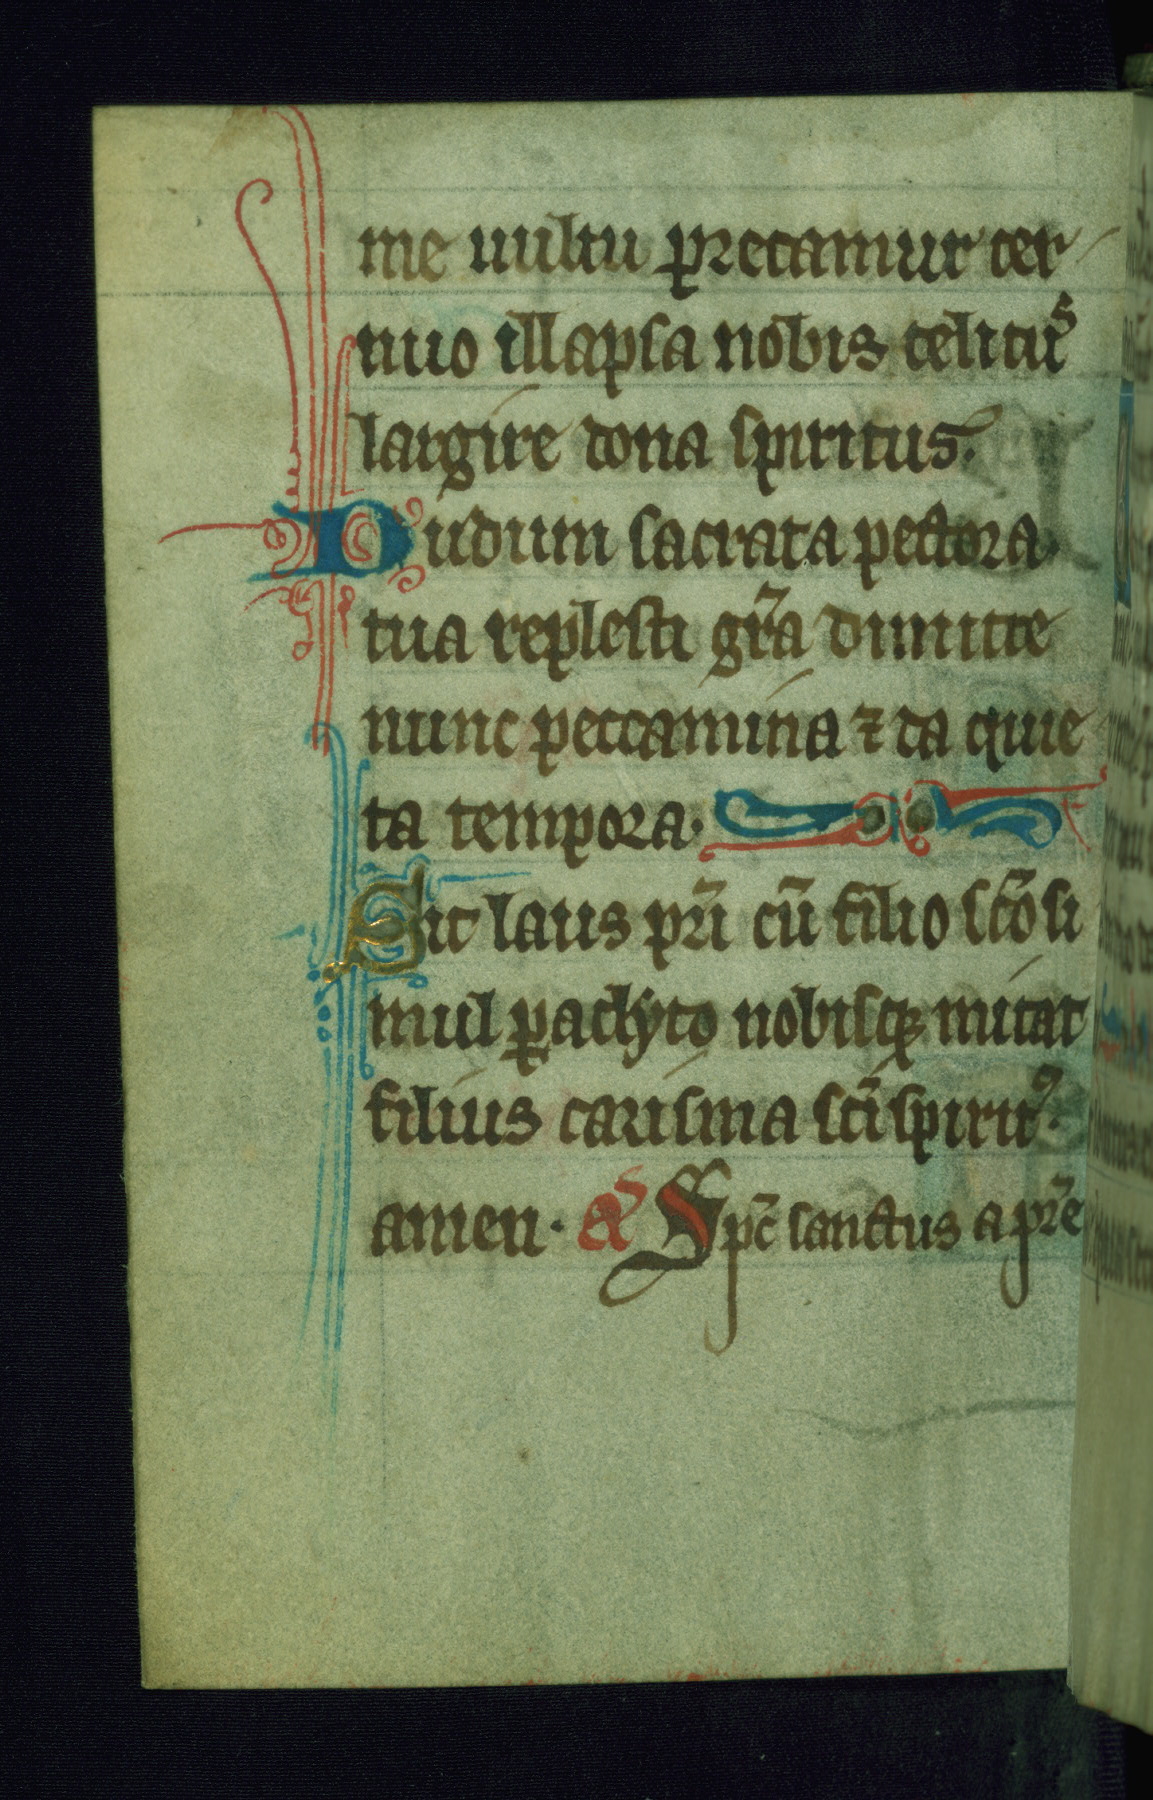 me uultu precamur cer
nuo illapsa nobis celitus
largire dona spiritus.
Dudum sacrata pectora
tua replesti gr̃a dimitte
nunc peccamina ⁊ da quie
ta tempora.
Sit laus pr̃i cũ filio sc̃o si
mul ꝑaclyto nobisqꝫ mitat
filius carisma sc̃i spiritꝰ.
amen. añ Sp̃c sanctus a pr̃e